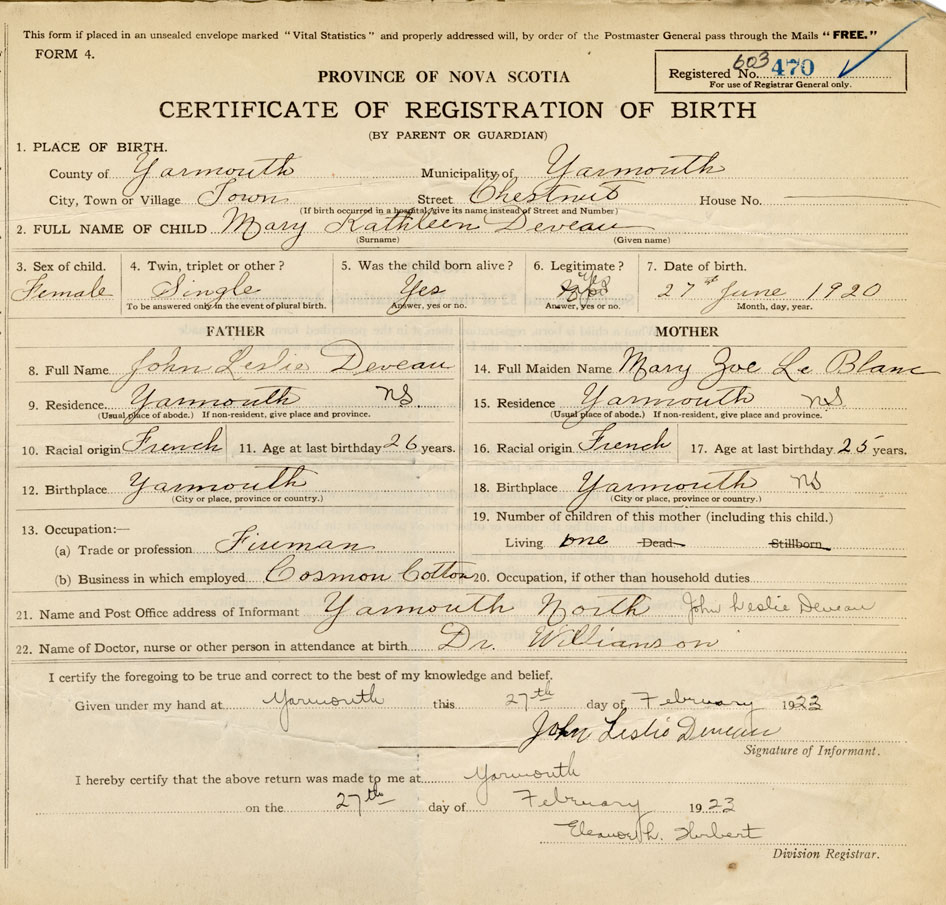 This form if placed in an unsealed envelope marked "Vital Statistics" and properly addressed will, by order of the Postmaster General pass through the Mails "FREE."
FORM 4.
Registered No. 603 470
For use of Registrar General only.
PROVINCE OF NOVA SCOTIA
CERTIFICATE OF REGISTRATION OF BIRTH
(BY PARENT OR GUARDIAN)
1. PLACE OF BIRTH.
County of Yarmouth Municipality of Yarmouth
City, Town or Village Town Street Chestnut House No.
(If birth occurred in a hospital, give its name instead of Street and Number)
2. FULL NAME OF CHILD Mary Kathleen Deveau
(Surname) (Given name)
3. Sex of child. 4. Twin, triplet or other? 5. Was the child born alive? 6. Legitimate? 7. Date of birth.
Female Single Yes Yes 27st June 1920
To be answered only in the event of plural birth. Answer, yes or no. Answer, yes or no. Month, day, year.
FATHER MOTHER
8. Full Name John Leslie Deveau 14. Full Maiden Name Mary Zoe Le Blanc
9. Residence Yarmouth NS. 15. Residence Yarmouth NS
(Usual place of abode.) If non-resident, give place and province. (Usual place of abode.) If non-resident, give place and province.
10. Racial origin French 11. Age at last birthday 26 years. 16. Racial origin French 17. Age at last birthday 25 years.
12. Birthplace Yarmouth 18. Birthplace Yarmouth NS
(City or place, province or country.) (City or place, province or country.)
13. Occupation:— 19. Number of children of this mother (including this child.)
(a) Trade or profession Fireman Living one Dead Stillborn
(b) Business in which employed Cosmon Cotton 20. Occupation, if other than household duties
21. Name and Post Office address of Informant Yarmouth North John Leslie Deveau
22. Name of Doctor, nurse or other person in attendance at birth Dr. Willianson
I certify the foregoing to be true and correct to the best of my knowledge and belief.
Given under my hand at Yarmouth this 27th day of February 1923
John Leslie Deveau
Signature of Informant.
I hereby certify that the above return was made to me at Yarmouth
on the 27th day of February 1923
Herbert
Division Registrar.